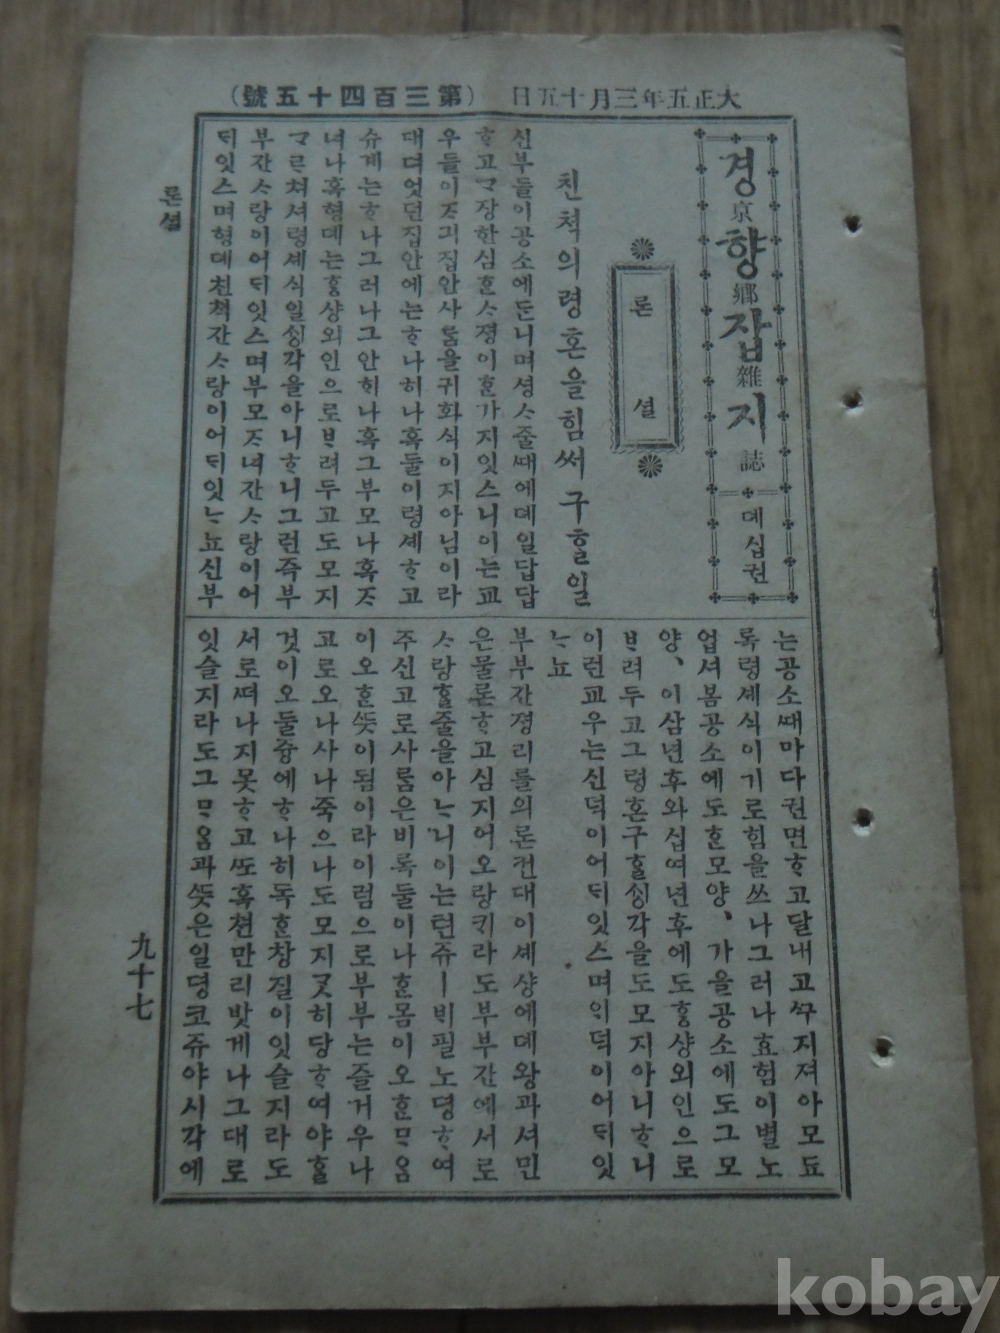 大正五年三月十五日
(第三百四十五號)
경京향鄕잡雜지誌
뎨십권
론셜
친쳑의령혼을힘써구ᄒᆞᆯ일
신부들이공소에ᄃᆞᆫ니며셩ᄉᆞ줄ᄯᅢ에뎨일답답
ᄒᆞ고ᄀᆞ장한심ᄒᆞᆫᄉᆞ졍이ᄒᆞᆫ가지잇스니이는교
우들이ᄌᆞ긔집안사ᄅᆞᆷ을귀화식이지아님이라
대뎌엇던집안에는ᄒᆞ나히나혹둘이령셰ᄒᆞ고
슈계는ᄒᆞ나그러나그안ᄒᆡ나혹그부모나혹ᄌᆞ
녀나혹형뎨는ᄒᆞᆼ샹외인으로ᄇᆞ려두고도모지
ᄀᆞᄅᆞ쳐셔령셰식일ᄉᆡᆼ각을아니ᄒᆞ니그런즉부
부간ᄉᆞ랑이어ᄃᆡ잇스며부모ᄌᆞ녀간ᄉᆞ랑이어
ᄃᆡ잇스며형뎨친쳑간ᄉᆞ랑이어ᄃᆡ잇ᄂᆞ뇨신부
는공소ᄯᅢ마다권면ᄒᆞ고달내고ᄭᅮ지져아모됴
록령셰식이기로힘을쓰나그러나효험이별노
업셔봄공소에도ᄒᆞᆫ모양、가을공소에도그모
양、이삼년후와십여년후에도ᄒᆞᆼ샹외인으로
ᄇᆞ려두고그령혼구ᄒᆞᆯᄉᆡᆼ각을도모지아니ᄒᆞ니
이런교우는신덕이어ᄃᆡ잇스며ᄋᆡ덕이어ᄃᆡ잇
ᄂᆞ뇨
부부간졍리를의론컨대이셰샹에뎨왕과셔민
은물론ᄒᆞ고심지어오랑키라도부부간에서로
ᄉᆞ랑ᄒᆞᆯ줄을아ᄂᆞ니이는텬쥬ㅣᄇᆡ필노뎡ᄒᆞ여
주신고로사ᄅᆞᆷ은비록둘이나ᄒᆞᆫ몸이오ᄒᆞᆫᄆᆞᄋᆞᆷ
이오ᄒᆞᆫᄯᅳᆺ이됨이라이럼으로부부는즐거우나
고로오나사나죽으나도모지ᄀᆞᆺ히당ᄒᆞ여야ᄒᆞᆯ
것이오둘즁에ᄒᆞ나히독ᄒᆞᆫ창질이잇슬지라도
서로ᄯᅥ나지못ᄒᆞ고ᄯᅩ혹쳔만리밧게나그대로
잇슬지라도그ᄆᆞᄋᆞᆷ과ᄯᅳᆺ은일뎡코쥬야시각에
론셜
九十七
kobay